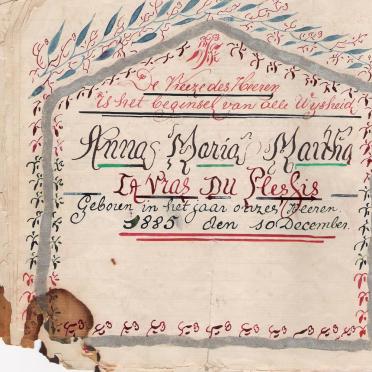 De Vreeze des Heeren
is het beginsel van alle Wysheid
Anna Maria Martha
Du Plessis
Geboren in het jaar onzes Heeren
1885 den 10 December.